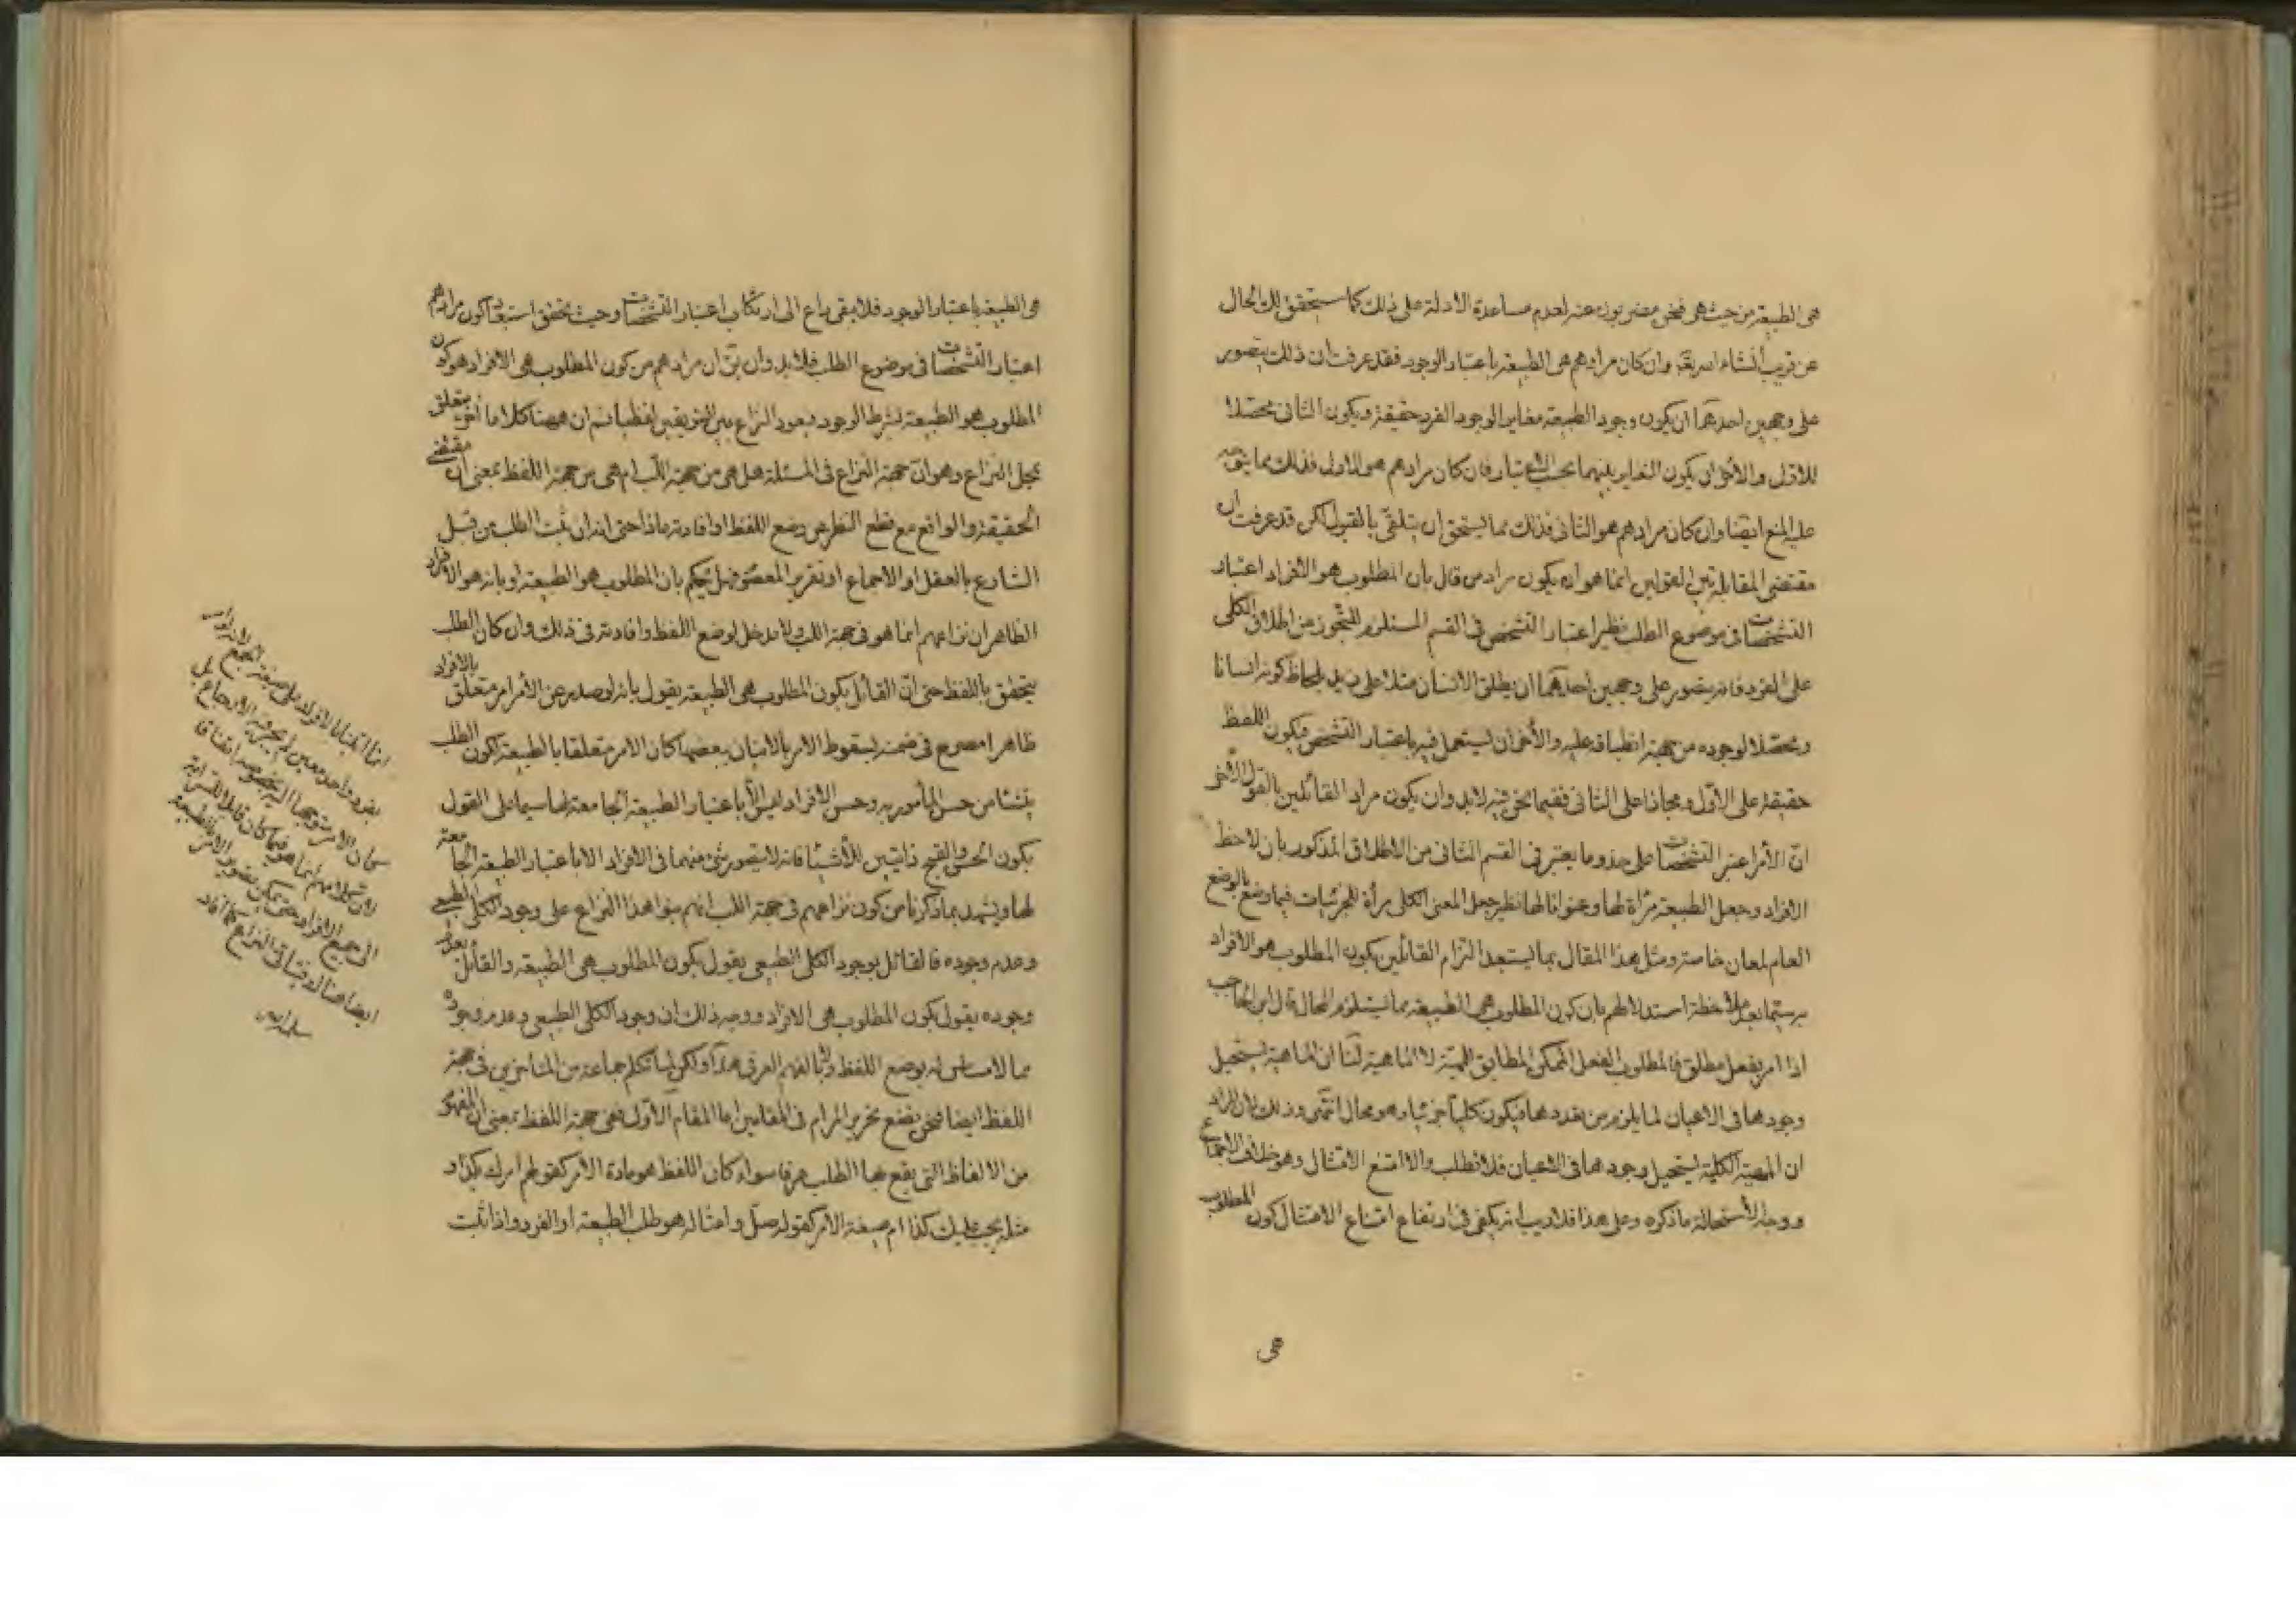 هى الطبيعة من حيث هى فنحن مضربون عنه لعدم مساعدة الادلة على ذلك كما ستحقق لك الحال
عن قريب انشاء الله تعالى وان كان مرادهم هى الطبيعة باعتبار الوجود فقد عرفت ان ذلك يتصور
على وجهين احدهما ان يكون وجود الطبيعة مغاير الوجود الفرد حقيقة ويكون الثانى محصلا
للاول والاخر ان يكون التغاير بينهما بحسب الاعتبار فان كان مرادهم هو الاول فذلك مما يتوجه
عليه المنع ايضا وان كان مرادهم هو الثانى فذلك مما يستحق ان يتلقى بالقبول لكن قد عرفت ان
مقتضى المقابلة بين القولين انما هو ان يكون مراد من قال بان المطلوب هو الافراد اعتبار
التشخصات فى موضوع الطلب نظير اعتبار التشخص فى القسم المستلزم للتجوز من اطلاق الكلى
على الفرد فانه يتصور على وجهين احدهما ان يطلق الانسان مثلا على زيد بلحاظ كونه انسانا
ومحصلا لوجوده من جهة انطباقه عليه والأخر ان يستعمل فيه باعتبار التشخص فيكون اللفظ
حقيقة على الاول ومجازا على الثانى ففيما نحن فيه لابد وان يكون مراد القائلين بالقول الأخر
ان الأمر اعتبر التشخصات على حذو ما يعتبر فى القسم الثانى من الاطلاق المذكور بان لاحظ
الافراد وجعل الطبيعة مرأة لها وعنوانا لها نظير جعل المعنى الكلى مرأة للجزئيات فيما وضع بالوضع
العام لمعان خاصة ومثل هذا المقال مما يستبعد التزام القائلين بكون المطلوب هو الافراد
به سيما بعد ملاحظة استدلالهم بان كون المطلوب هى الطبيعة مما يستلزم المحال قال ابن الحاجب
اذا امر بفعل مطلق فالمطلوب الفعل الممكن المطابق للمهية لا الماهية لنا ان الماهية يستحيل
وجودها فى الاعيان لما يلزم من تعددها فيكون كليا جزئيا وهو محال انتهى وذلك لان المراد
ان المهية الكلية يستحيل وجودها فى الاعيان فلا تطلب والا امتنع الامتثال وهو خلاف الاجماع
ووجه الاستحالة ما ذكره وعلى هذا فلا ريب انه يكفى فى ارتفاع امتناع الامتثال كون المطلوب
هى
هى الطبيعة باعتبار الوجود فلا يبقى داع الى ارتكاب اعتبار التشخصات وحيث تحقق استبعاد كون مرادهم
اعتبار التشخصات فى موضوع الطلب فلابد وان يق ان مرادهم من كون المطلوب هى الافراد هو كون
المطلوب هو الطبيعة بشرط الوجود ويعود النزاع بين الفريقين لفظيا ثم ان ههنا كلاما اخر يتعلق
بمحل النزاع وهو ان جهة النزاع فى المسئلة هل هى من جهة اللب ام هى من جهة اللفظ بمعنى ان مقتضى
الحقيقة والواقع مع قطع النظر عن وضع اللفظ او افادته ماذا حتى انه ان ثبت الطلب من قبل
الشارع بالعقل او الاجماع او تقرير المعصوم فهل يحكم بان المطلوب هو الطبيعة او بانه هو الافراد
الظاهر ان نزاعهم انما هو فى جهة اللب ولا مدخل لوضع اللفظ وافادته فى ذلك وان كان الطلب
يتحقق باللفظ حتى ان القائل بكون المطلوب هى الطبيعة يقول بانه لو صدر عن الأمر امر متعلق بالافراد
ظاهرا مصرح فى ضمنه بسقوط الامر بالاتيان ببعضها كان الامر متعلقا بالطبيعة لكون الطلب
ينشأ من حسن المأمور به وحسن الافراد ليس الا باعتبار الطبيعة الجامعة لها سيما على القول
بكون الحسن والقبح ذاتيين للاشياء فانه لا يتصور شئ منهما فى الافراد الا باعتبار الطبيعة الجامعة
لها ويشهد بما ذكرنا من كون نزاعهم فى جهة اللب انهم بنوا هذا النزاع على وجود الكلى الطبيعى
وعدم وجوده فالقائل بوجود الكلى الطبيعى يقول بكون المطلوب هى الطبيعة والقائل بعدم
وجوده يقول بكون المطلوب هى الافراد ووجه ذلك ان وجود الكلى الطبيعى وعدم وجوده
مما لا مساس له بوضع اللفظ ولا بالفهم العرفى هذا ولكن لما تكلم جماعة من المتأخرين فى جهة
اللفظ ايضا فنحن نضع تحرير المرام فى المقامين اما المقام الاول ففى جهة اللفظ بمعنى ان المفهوم
من الالفاظ التى يقع بها الطلب عرفا سواء كان اللفظ هو مادة الامر كقولهم امرك بكذا و
مثله يجب عليك كذا ام صيغة الامر كقوله صل وامثاله هو طلب الطبيعة او الفرد واذا ثبت
بفرد واحد معين لم يجز فيه الارجاع بل
كان الامر متوجها اليه بخصوصه اتفاقا